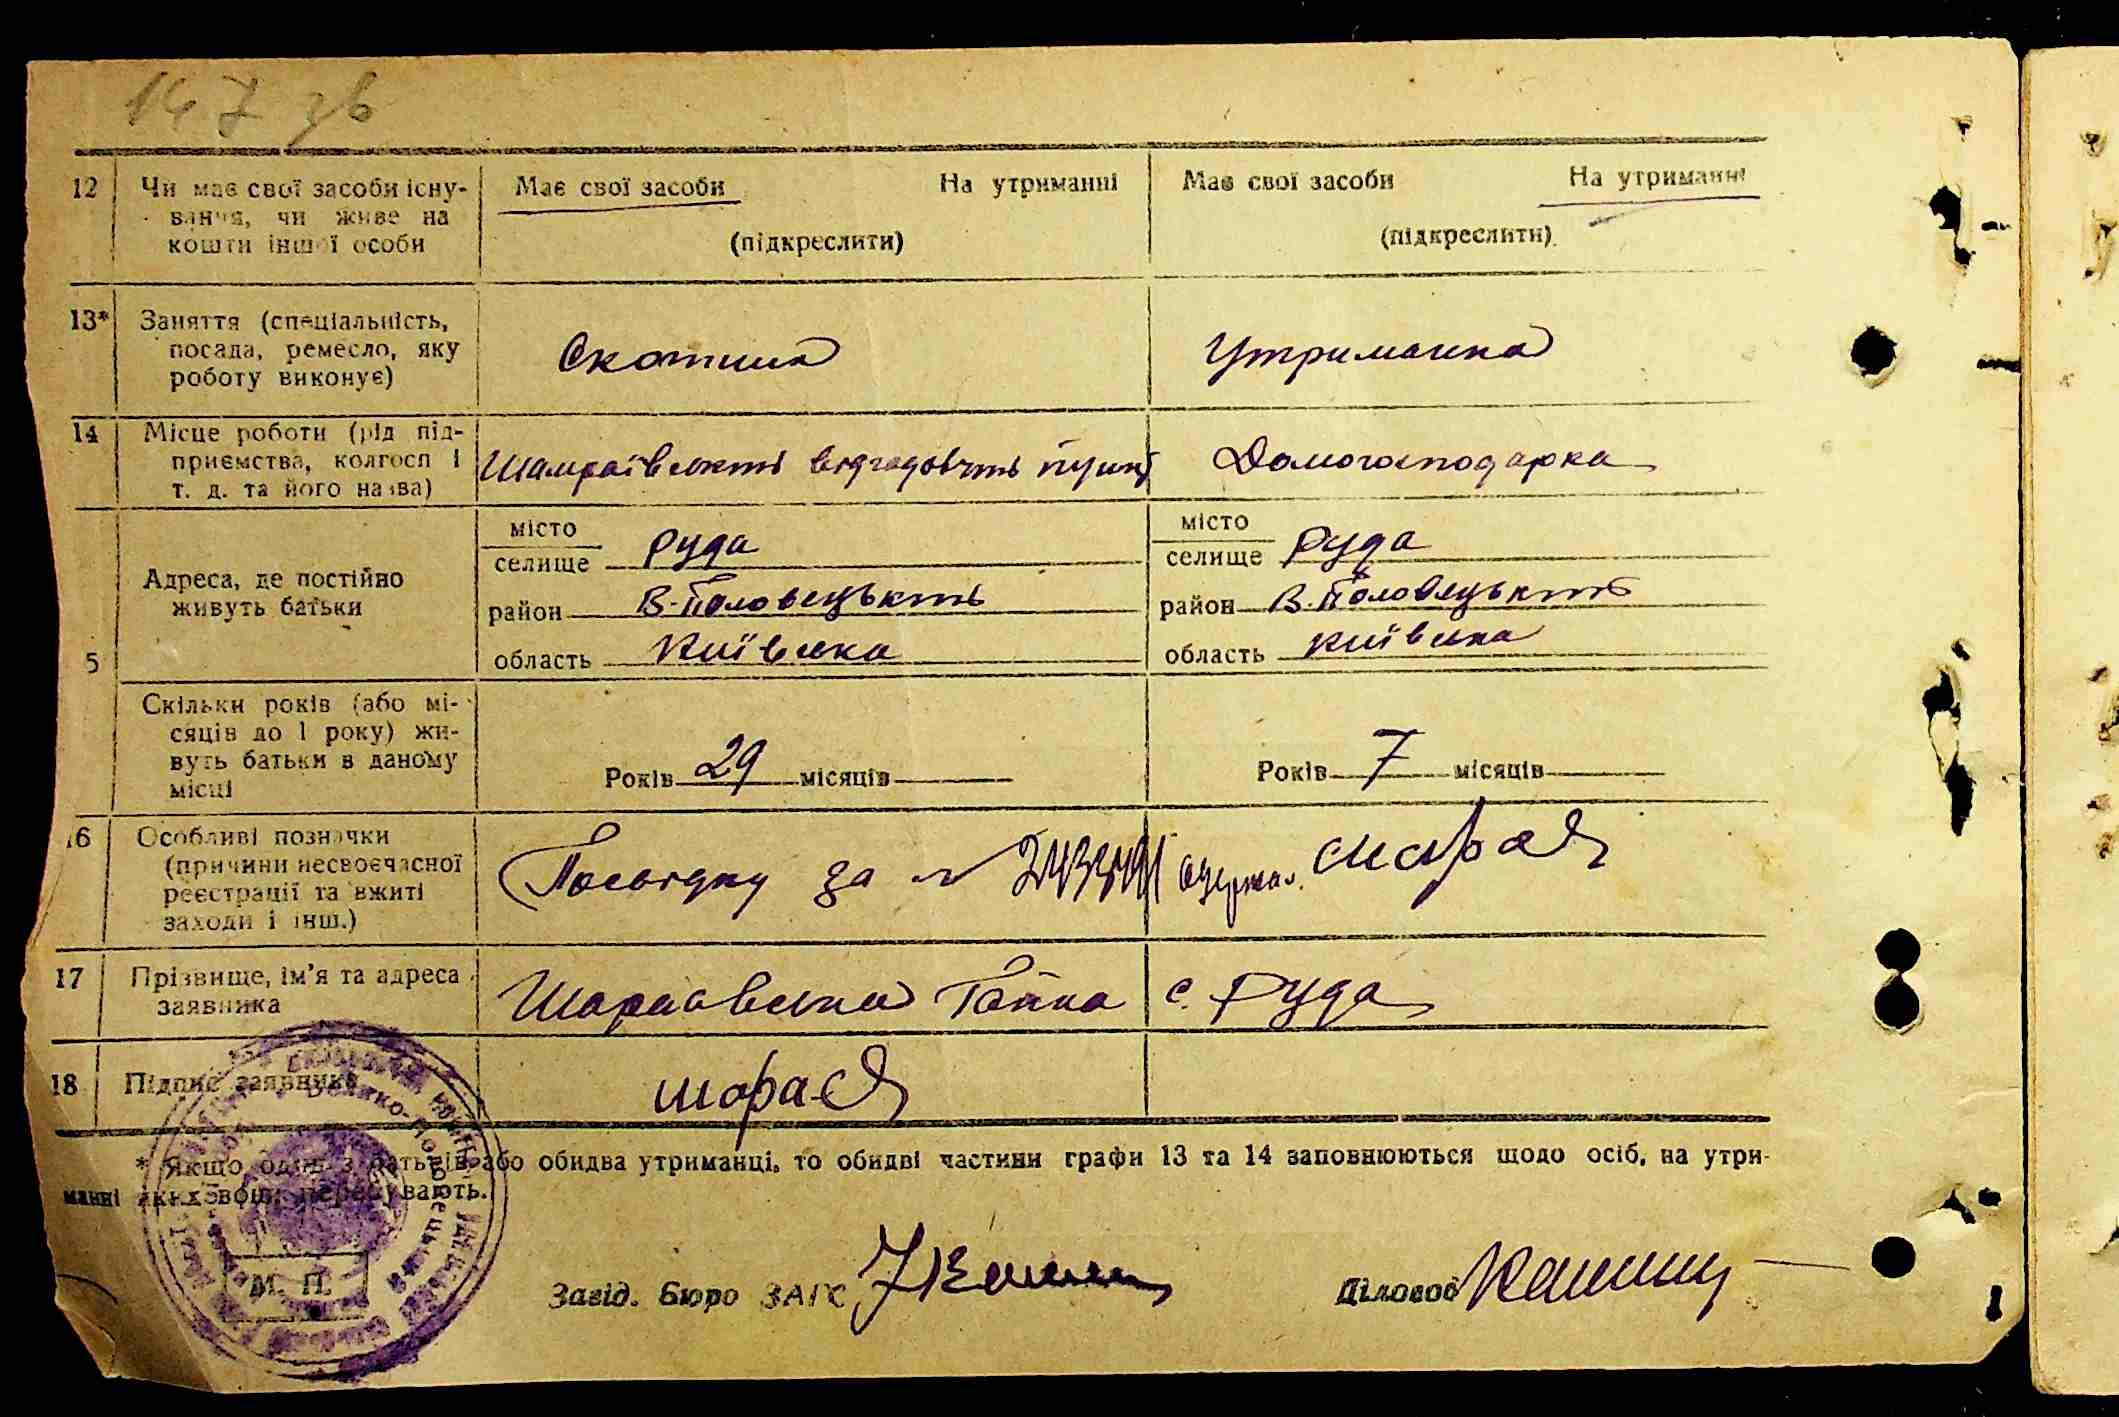 147 зв
12 Чи має свої засоби існу- Має свої засоби На утриманні Має свої засоби На утриманні
вання, чи живе на
кошти іншої особи (підкреслити) (підкреслити)
13* Заняття (спеціальність,
посада, ремесло, яку Утриманка
роботу виконує)
14 Місце роботи (рід під-
приємства, колгосп і Шамраївський відгодовчий пункт Домогосподарка
т. д. та його назва)
місто місто
селище Руда селище Руда
Адреса, де постійно
живуть батьки район В-Половецький район В.Половецький
5 область Київська область Київська
Скільки років (або мі-
сяців до 1 року) жи-
вуть батьки в даному Років 29 місяців Років 7 місяців
місці
16 Особливі позначки
(причини несвоєчасної за
реєстрації та вжиті
заходи і інш.)
17 Прізвище, ім'я та адреса
заявника Ганна с. Руда
18 Підпис заявника
* Якщо один з батьків або обидва утриманці, то обидві частини графи 13 та 14 заповнюються щодо осіб, на утри-
манні яких вони перебувають.
М. П.
Завід. Бюро ЗАГС Діловод